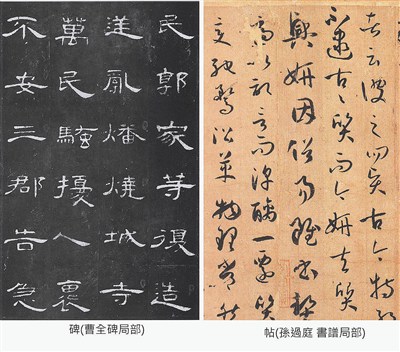 民郭家等復造
逆亂燔燒城寺
萬民騷擾人裏
不安三郡告急
者云彼之四賢古今特絕
不逮古々質而今妍夫質
興妍因俗易雖書契
適以記言而淳醨一遷質
變馳騖沿革物理常然
碑(曹全碑局部)
帖(孫過庭 書譜局部)